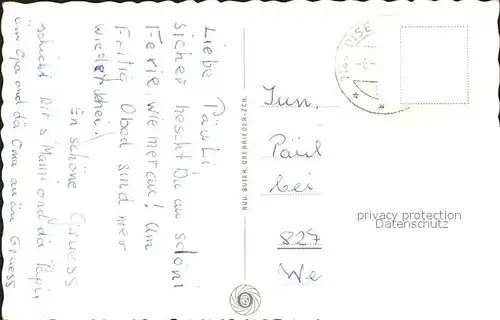 Liebe Päuli
sicher hescht Du au schöni
Ferie, wie mer au! Am
Fritig Obed sind mer
wieder hei!
En schöne Gruess
schickt Dir s Mami und dä Papi
üm Opa und dä Oma au än Gruess
RUD. SUTER, OBERRIEDER-ZCH.
Jun.
Päul
bei
827
We
privacy protection
Datenschutz